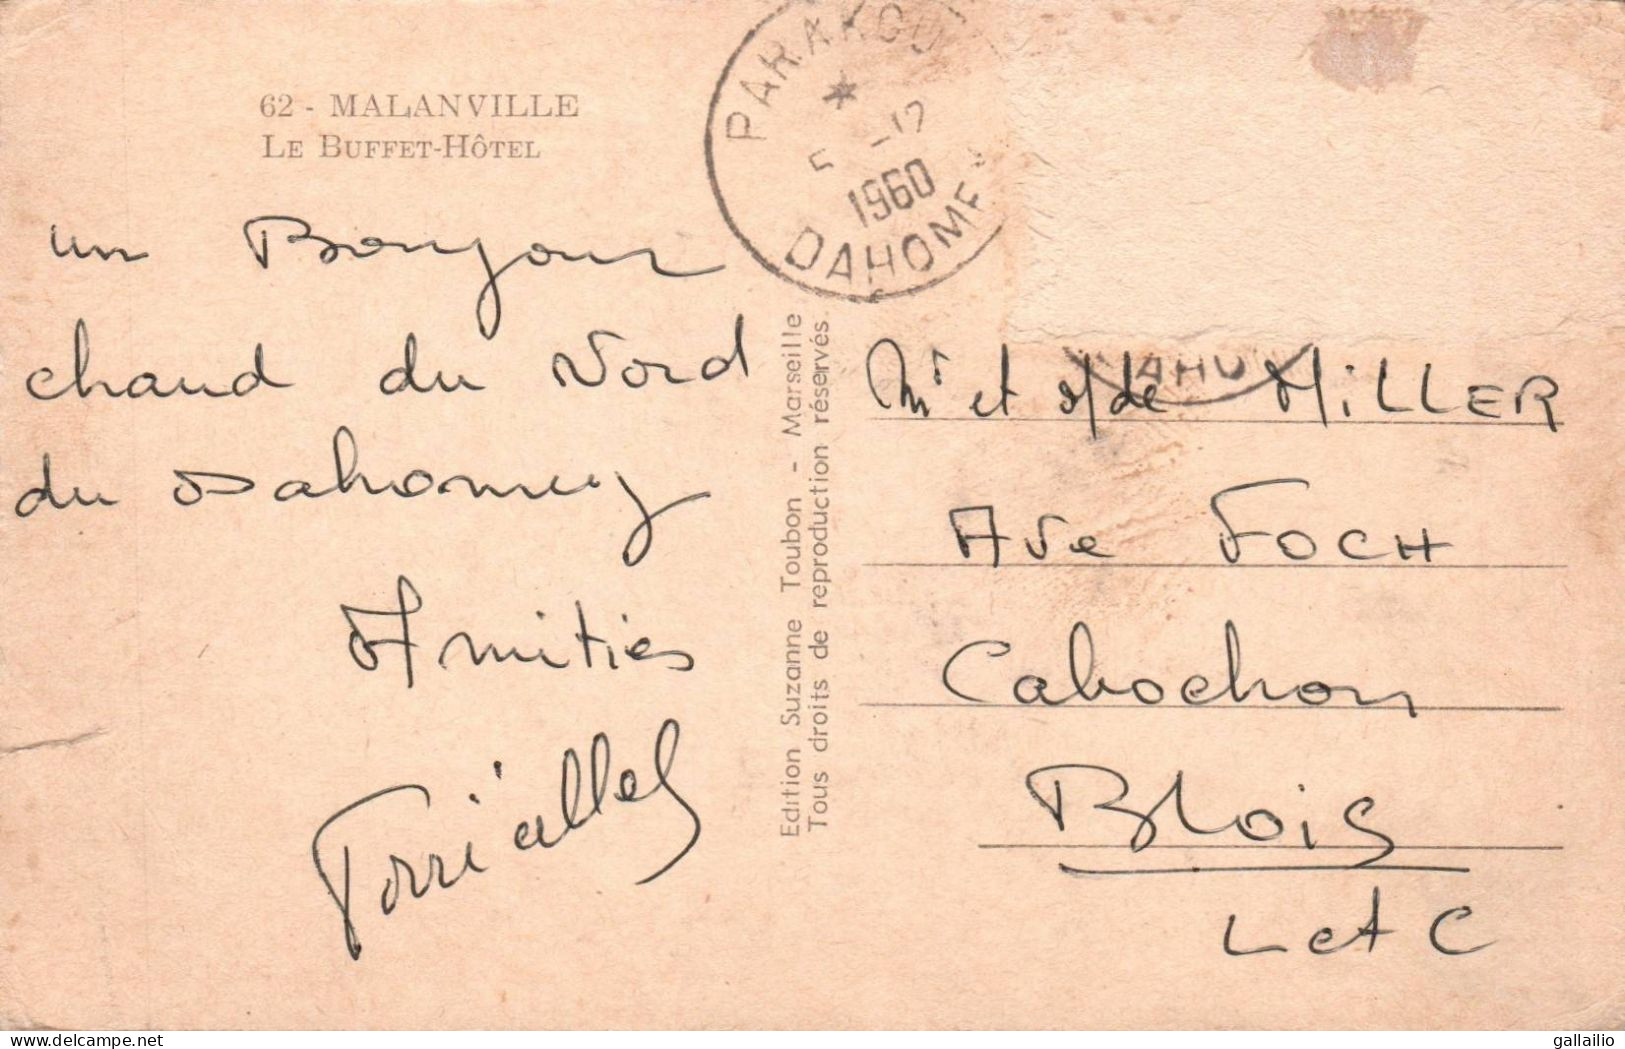 62 - MALANVILLE
LE BUFFET-HÔTEL
un Bonjour
chaud du Nord
du Dahomey
Amitiés
PARAKOU
5 -12
1960
DAHOMEY
Edition Suzanne Toubon - Marseille
Tous droits de reproduction réservés.
Mr et Mde MiLLER
Ave FOCH
Cabochon
Blois
L et C
delcampe.net
gallailio